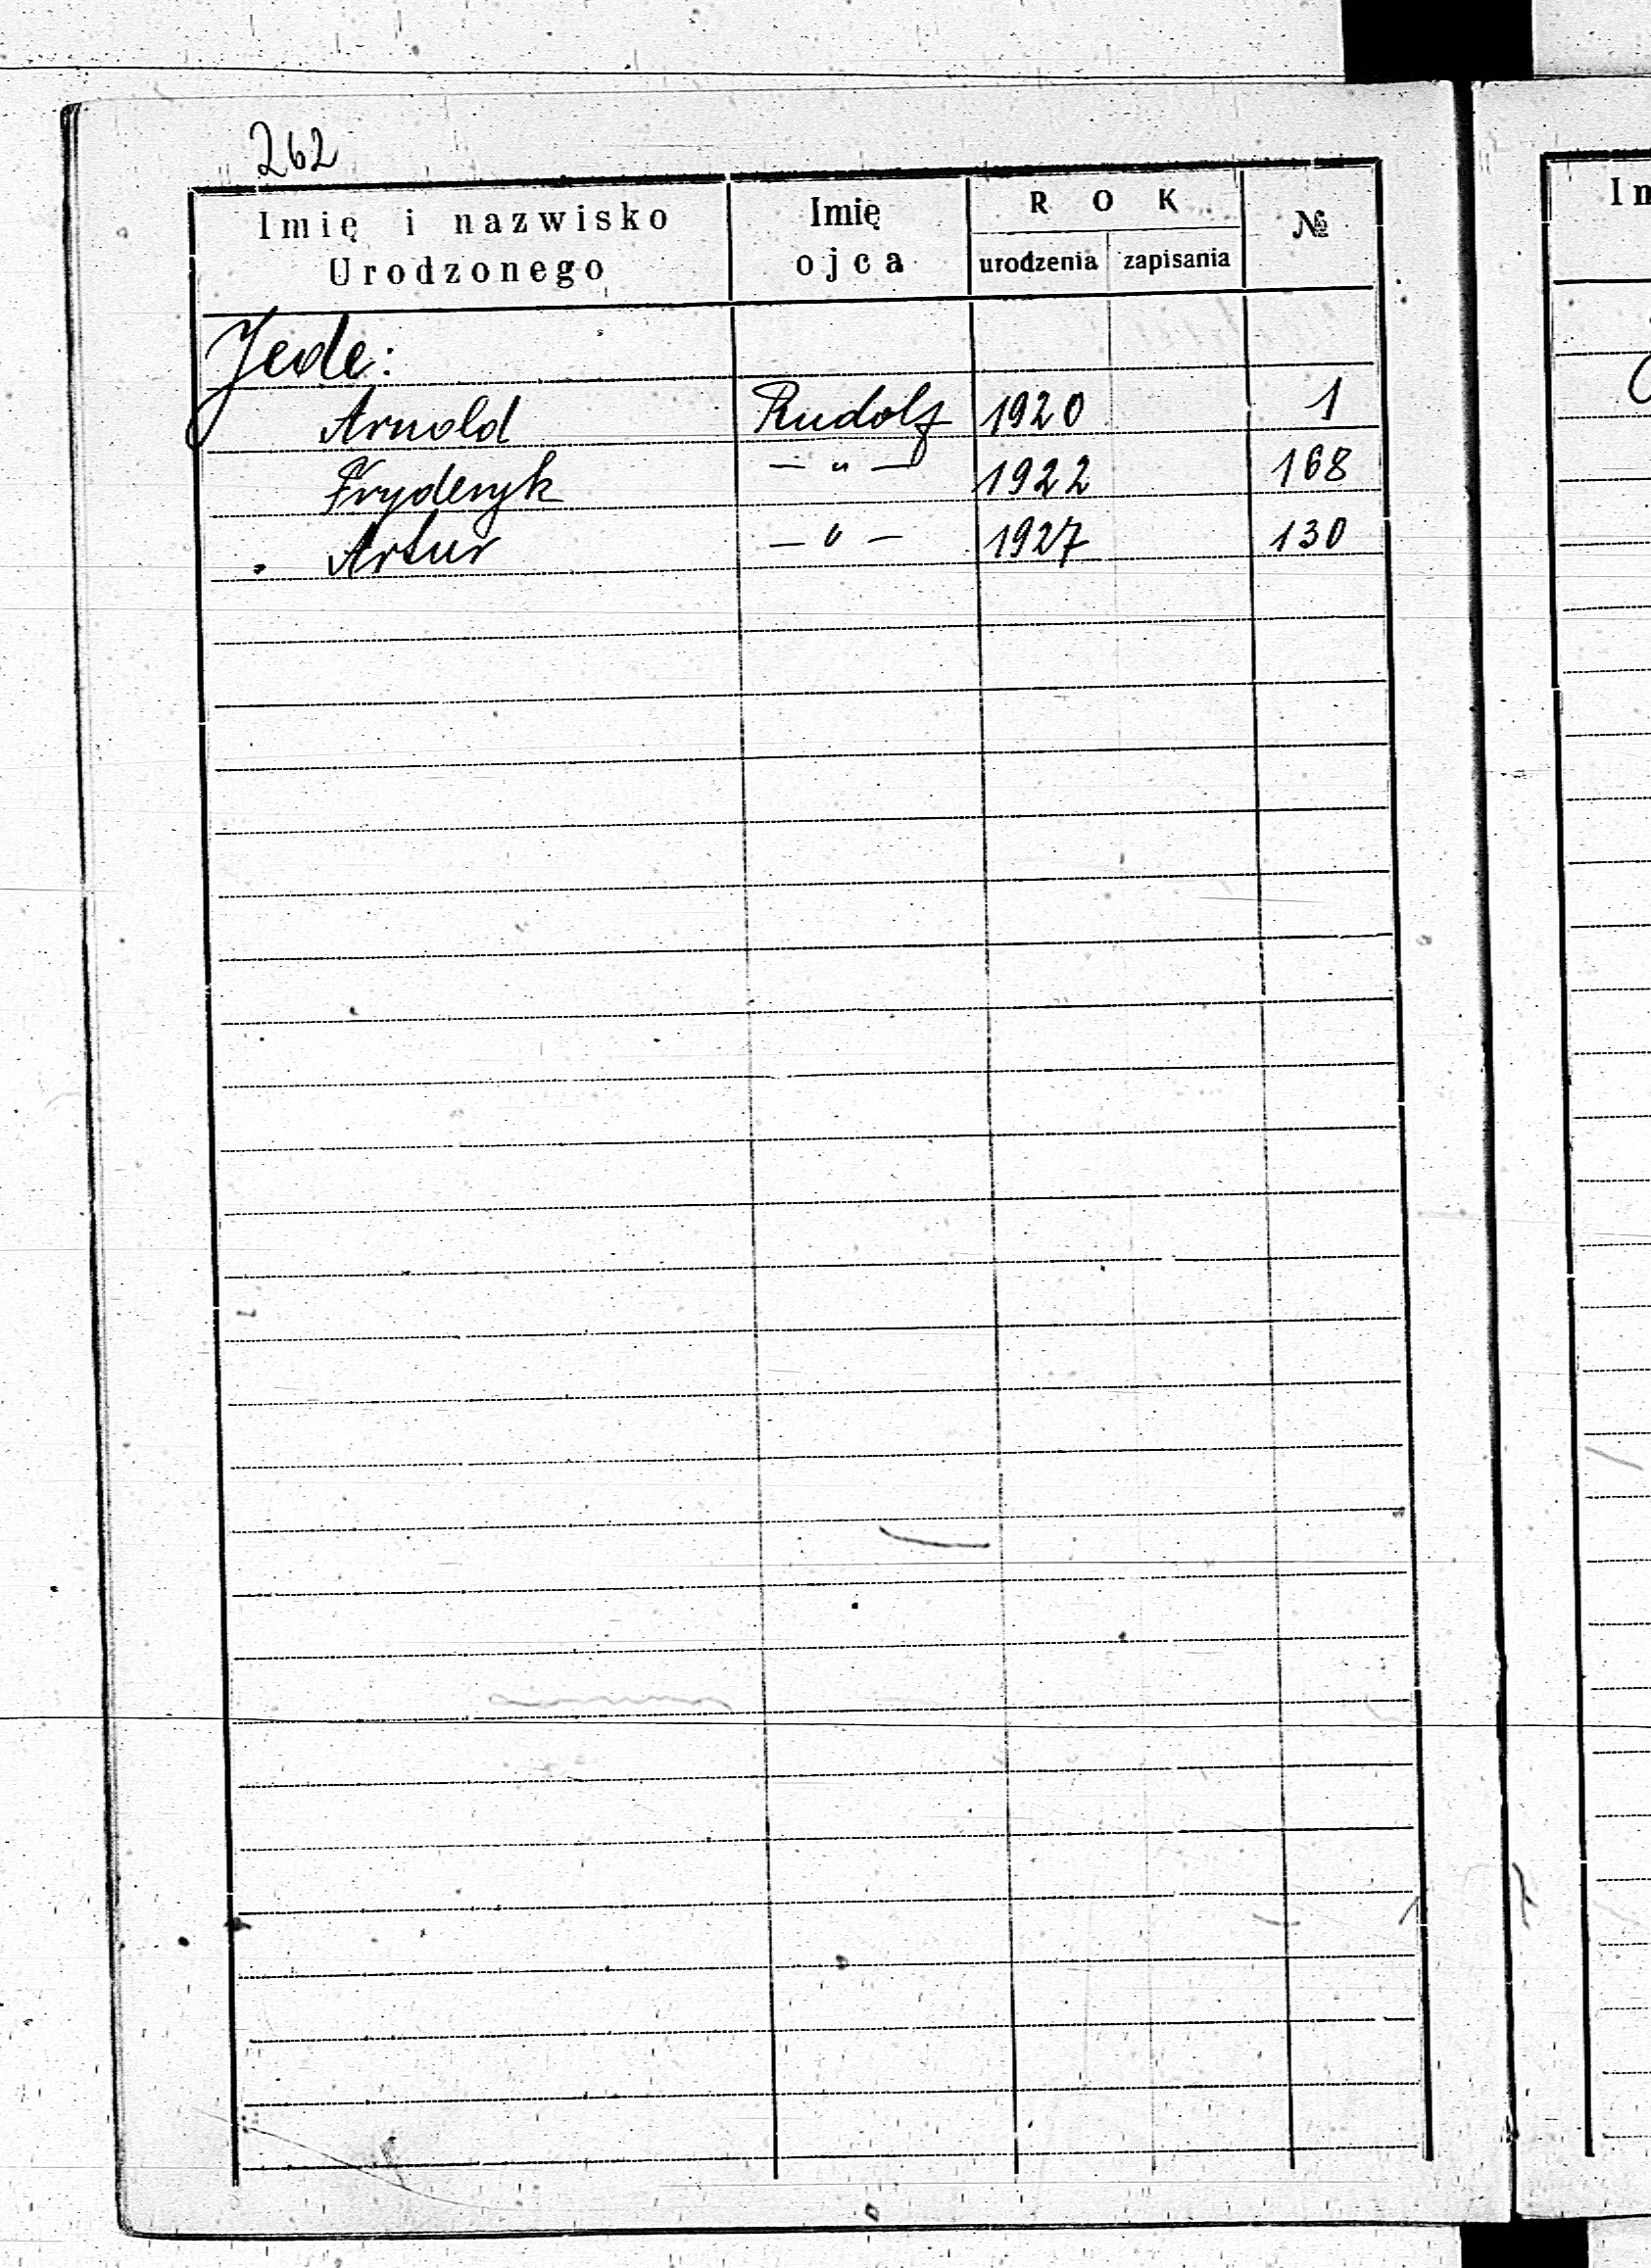 262
Imię i nazwisko Urodzonego | Imię ojca | ROK urodzenia | zapisania | №
Jede:
Arnold | Rudolf | 1920 | 1
Fryderyk | — " — | 1922 | 168
Artur | — " — | 1927 | 130